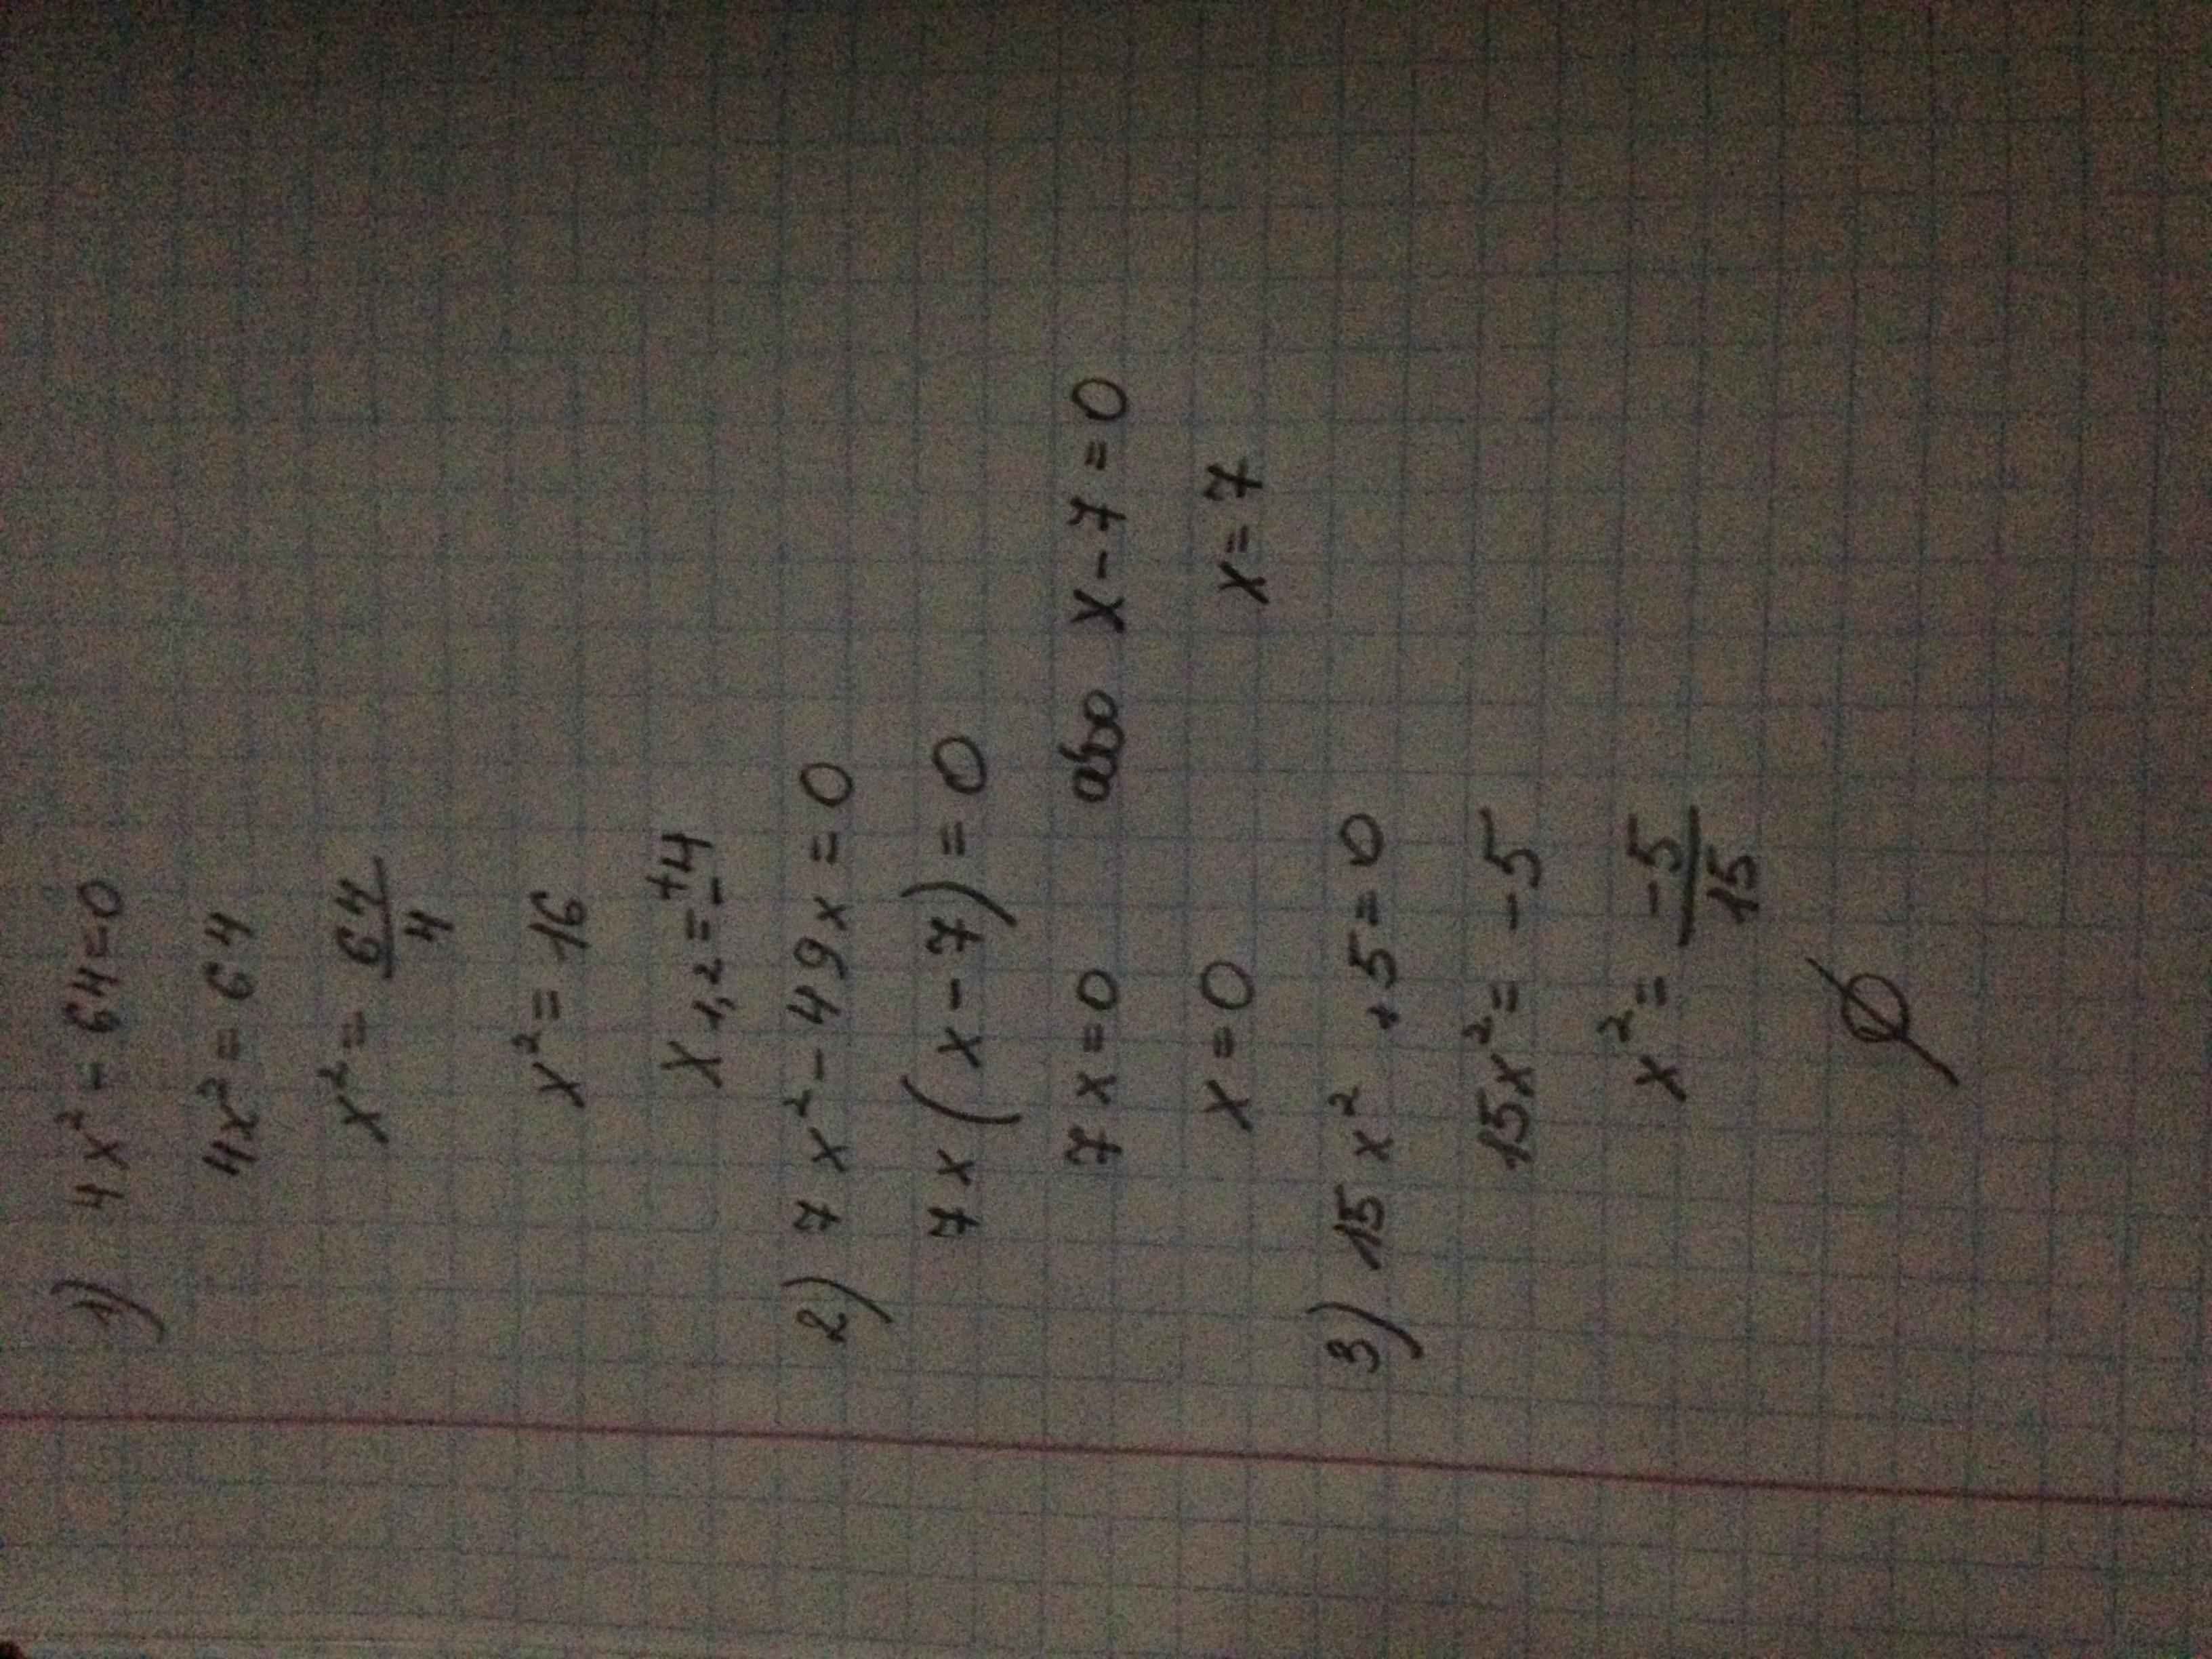 1) 4x² - 64 = 0
4x² = 64
x² = 64/4
x² = 16
x₁,₂ = ±4
2) 7x² - 49x = 0
7x(x - 7) = 0
7x = 0 або x - 7 = 0
x = 0 x = 7
3) 15x² + 5 = 0
15x² = -5
x² = -5/15
∅